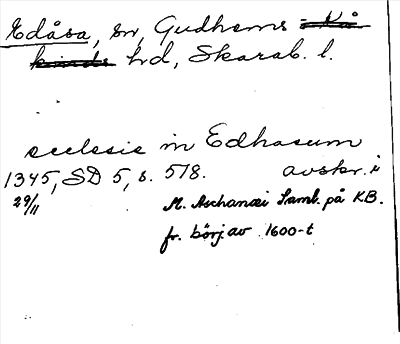 Edåsa, sn, Gudhems
hd, Skarab. l.
ecclesie in Edhasum
1345, SD 5, s. 518. avskr. i
29/11 M. Aschanæi Saml. på KB.
fr. börj. av 1600-t